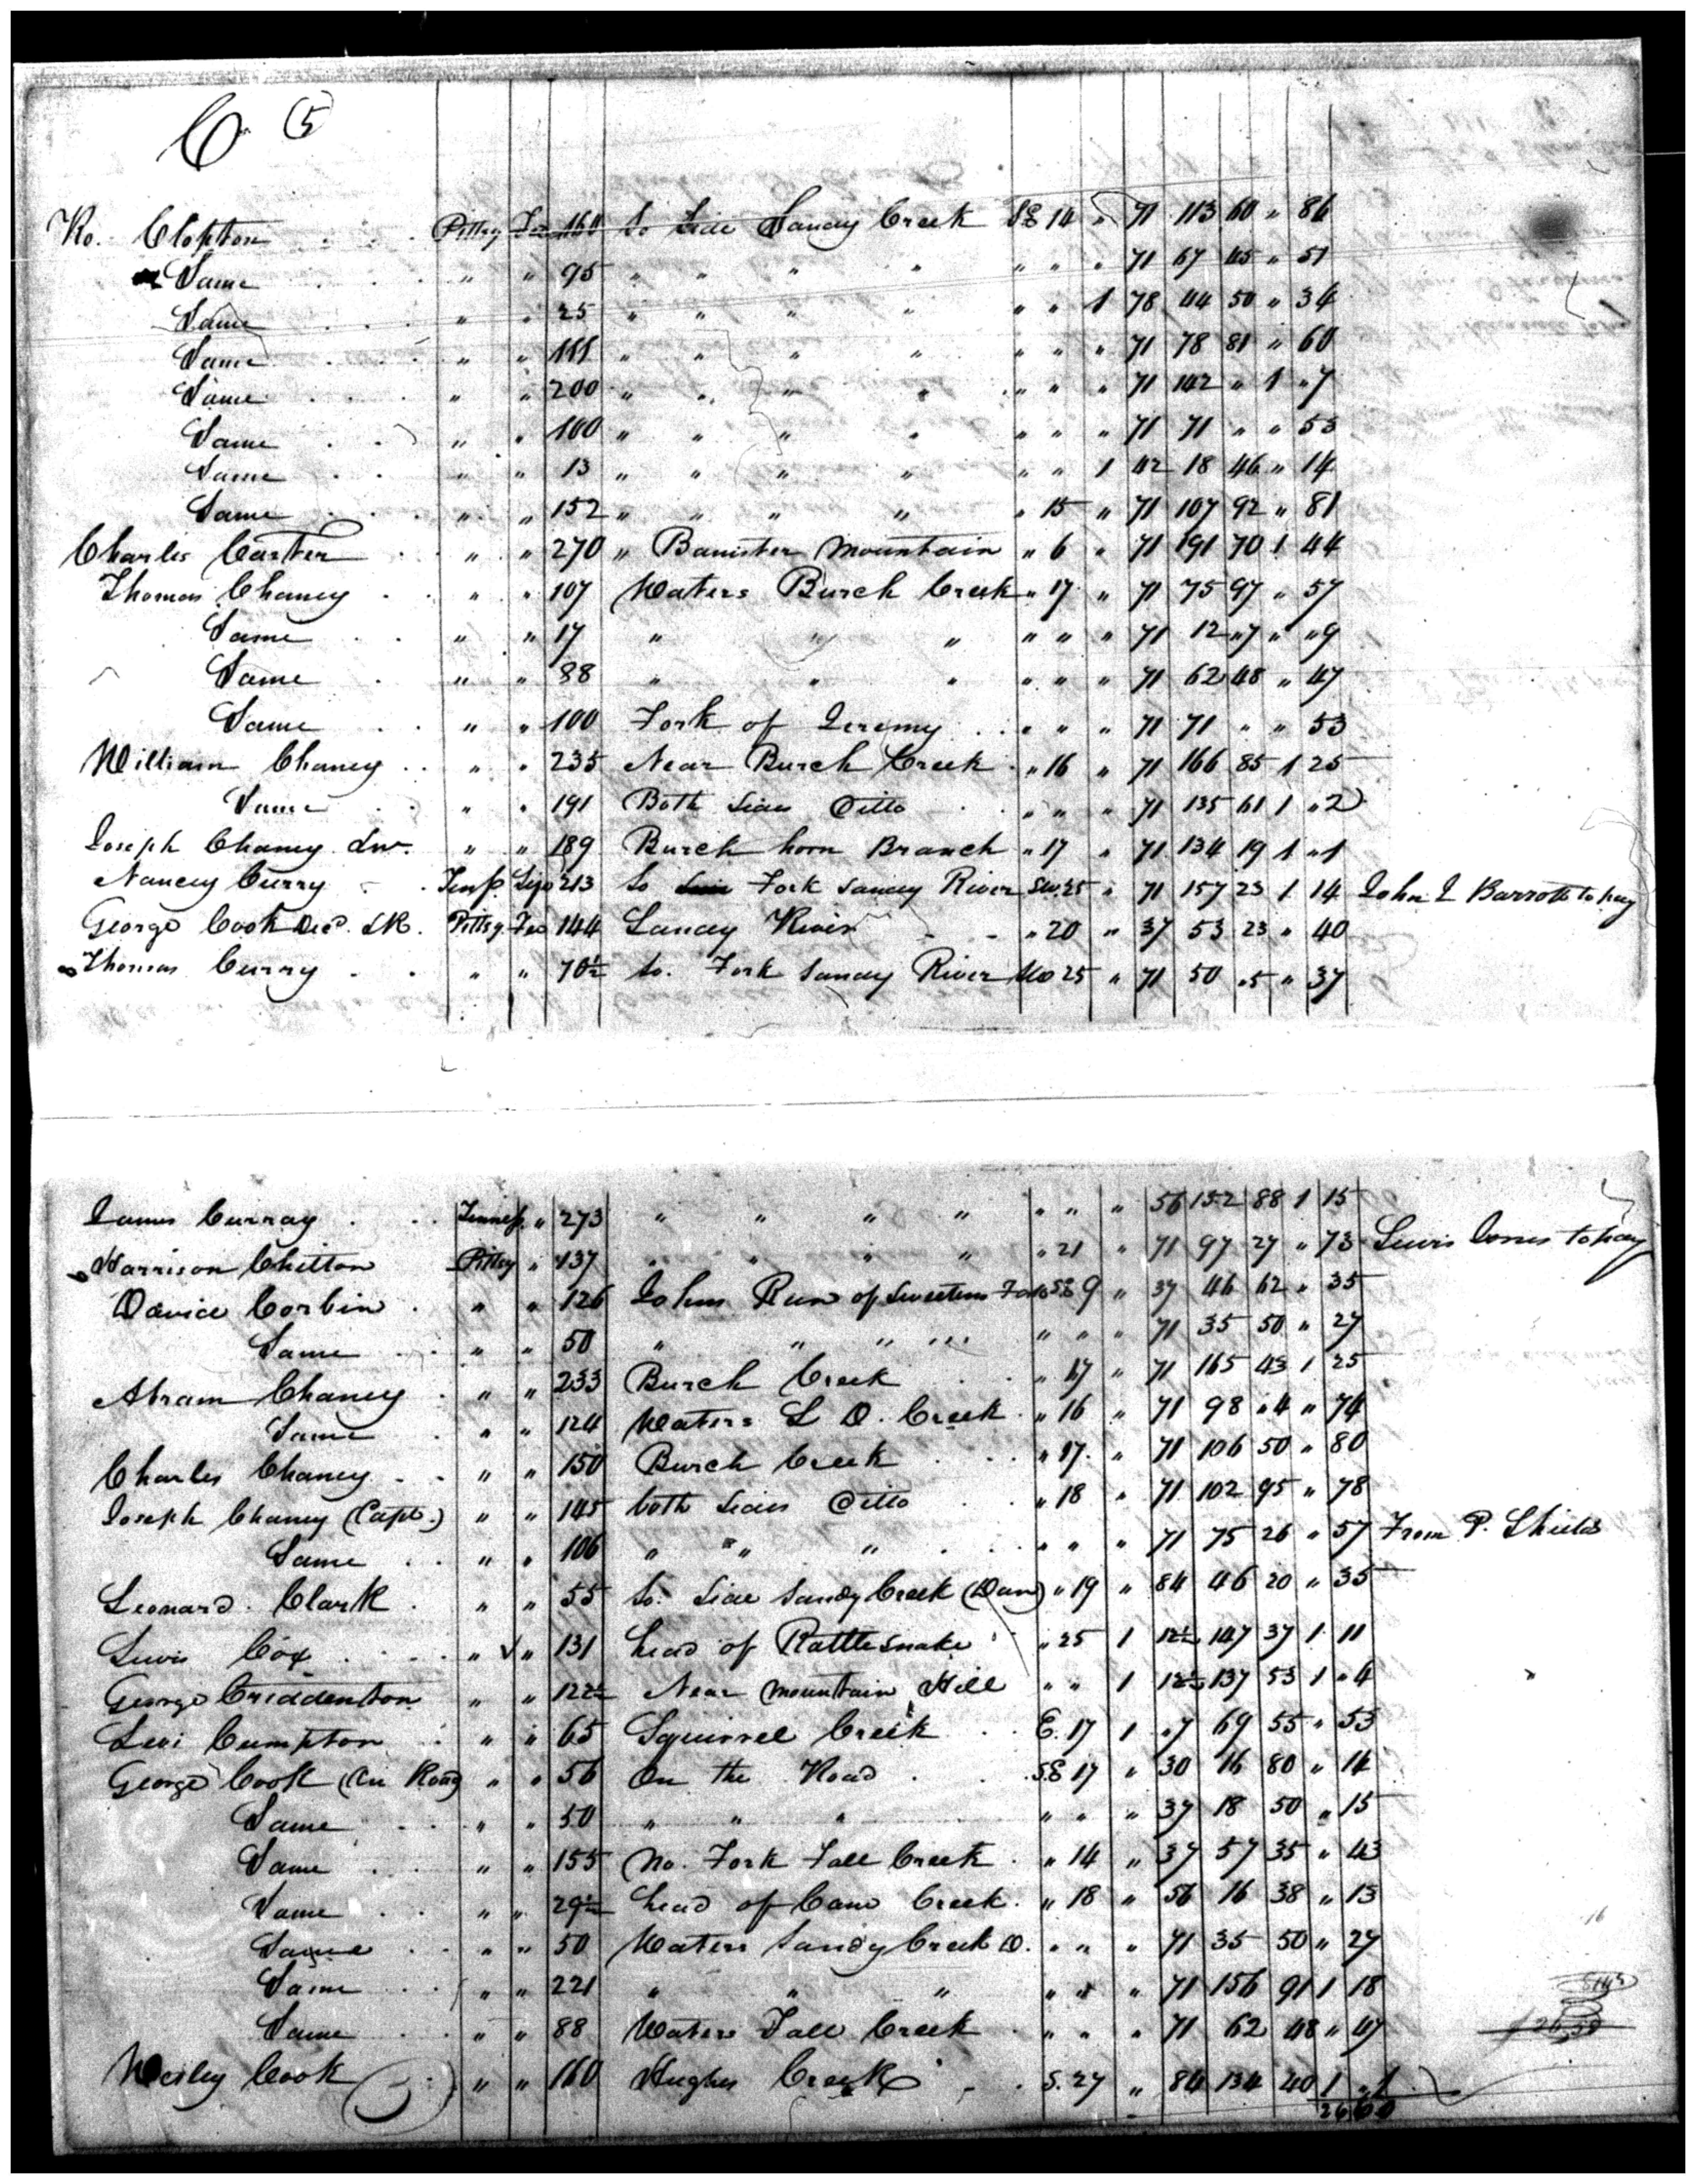 C (5)
Ro. Clopton Pittsy Fee 160 So Side Sandy Creek SE 14 " 71 113 60 " 86
Same " " 95 " " " " " " " 71 67 45 " 51
Same " " 25 " " " " " " 1 78 44 50 " 34
Same " " 111 " " " " " " " 71 78 81 " 60
Same " " 200 " " " " " " " 71 142 " 1 "7
Same " " 100 " " " " " " " 71 71 " " 53
Same " " 13 " " " " " " 1 42 18 46 " 14
Same " " 152 " " " " " 15 " 71 107 92 " 81
Charles Carter " " 270 " Banister Mountain " 6 " 71 191 70 1 44
Thomas Chaney " " 107 Waters Burch Creek " 17 " 71 75 97 " 57
Same " " 17 " " " " " " 71 12 "7 " "9
Same " " 88 " " " " " " 71 62 48 " 47
Same " " 100 Fork of Jeremy " " " 71 71 " " 53
William Chaney " " 235 Near Burch Creek " 16 " 71 166 85 1 25
Same " " 191 Both Sides Ditto " " " 71 135 61 1 "2
Joseph Chaney Snr. " " 189 Burch horn Branch " 17 " 71 134 19 1 "1
Nancy Curry Tensp. 213 So Fork Sandy River SW. 25 " 71 157 23 1 14 John L Barrott to pay
George Cook Decd. SR. Pittsy. Fee 144 Sandy River " 20 " 37 53 23 " 40
Thomas Curry " " 70½ So. Fork Sandy River 25 " 71 50 "5 " 37
James Curray Tennesp " 273 " " " " " " " 56 152 88 1 15
Harrison Chitton Pittsy " 137 " " " " " 21 " 71 97 27 " 73 Lewis Jones to pay
David Corbin " " 126 Johns Run of Sweetens Fork SE 9 " 37 46 62 " 35
Same " " 50 " " " " " " " 71 35 50 " 27
Abram Chaney " " 233 Burch Creek " 17 " 71 165 43 1 25
Same " " 124 Waters S D. Creek " 16 " 71 98 "4 " 74
Charles Chaney " " 150 Burch Creek " 17 " 71 106 50 " 80
Joseph Chaney (Capt.) " " 145 both Sides Ditto " 18 " 71 102 95 " 78
Same " " 106 " " " " " " 71 75 26 " 57 From P. Shields
Leonard Clark " " 55 So. Side Sandy Creek (Dan) " 19 " 84 46 20 " 35
Lewis Cox " √ " 131 head of Rattlesnake " 25 1 12½ 147 37 1 11
George Criddenton " " 122½ Near Mountain Hill " " 1 12½ 137 53 1 "4
Levi Cumpton " " 65 Squirrel Creek E. 17 1 "7 69 55 " 53
George Cook (on Road) " " 56 On the Road SE 17 " 30 16 80 " 14
Same " " 50 " " " " " " 37 18 50 " 15
Same " " 155 No. Fork Fall Creek " 14 " 37 57 35 " 43
Same " " 29½ head of Cane Creek " 18 " 56 16 38 " 13
Same " " 50 Waters Sandy Creek D. " " " 71 35 50 " 27
Same " " 221 " " " " " " 71 156 91 1 18
Same " " 88 Waters Fall Creek " " " 71 62 48 " 47
Wesley Cook " " 160 Hughes Creek S. 27 " 84 134 40 1 "1
26 60